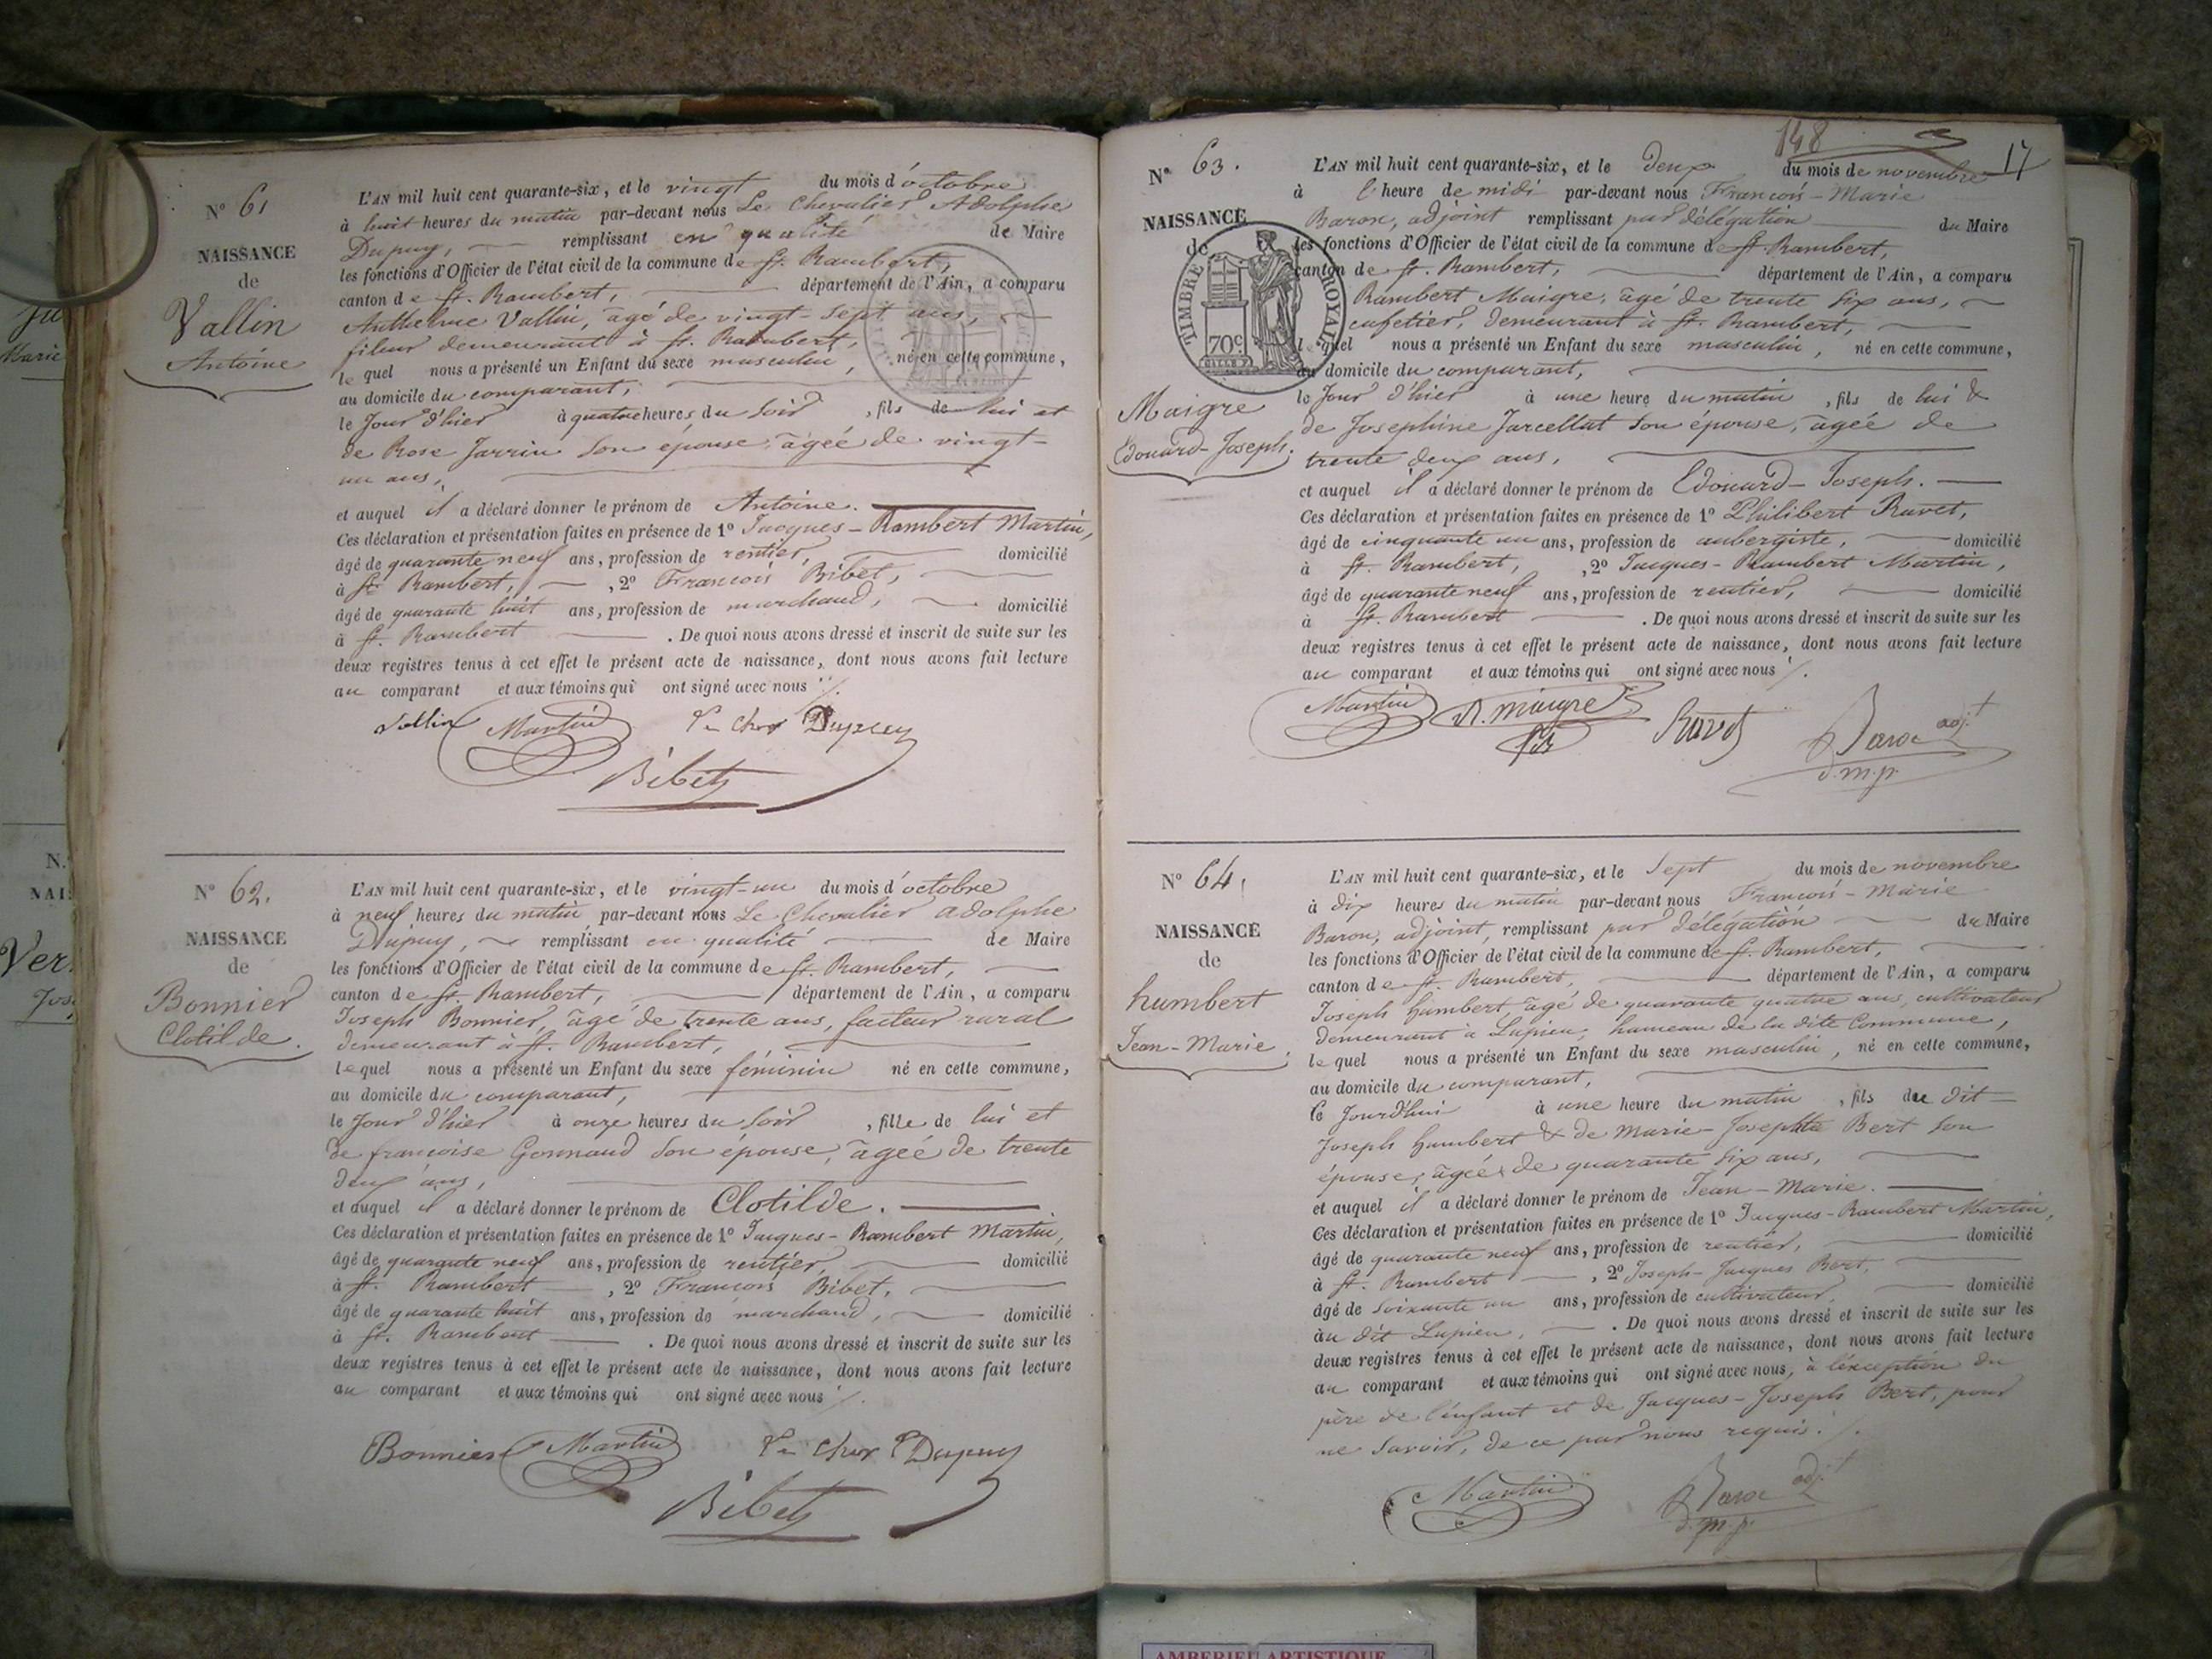 N° 61
NAISSANCE
de
Vallin
Antoine
L'AN mil huit cent quarante-six, et le vingt du mois d'octobre
à huit heures du matin par-devant nous Le Chevalier Adolphe
Dupuy, remplissant en qualité de Maire
les fonctions d'Officier de l'état civil de la commune de St. Rambert,
canton de St. Rambert, département de l'Ain, a comparu
Anthelme Vallin, âgé de vingt-sept ans,
fileur demeurant à St. Rambert,
lequel nous a présenté un Enfant du sexe masculin, né en cette commune,
au domicile du comparant,
le jour d'hier à quatre heures du soir, fils de lui et
de Rose Jarrin son épouse, âgée de vingt-
un ans,
et auquel il a déclaré donner le prénom de Antoine.
Ces déclaration et présentation faites en présence de 1° Jacques-Rambert Martin,
âgé de quarante neuf ans, profession de rentier, domicilié
à St. Rambert, , 2° François Bibet,
âgé de quarante huit ans, profession de marchand, domicilié
à St. Rambert . De quoi nous avons dressé et inscrit de suite sur les
deux registres tenus à cet effet le présent acte de naissance, dont nous avons fait lecture
au comparant et aux témoins qui ont signé avec nous ./.
Vallin Martin Le Cher Dupuy
Bibet
N° 62.
NAISSANCE
de
Bonnier
Clotilde.
L'AN mil huit cent quarante-six, et le vingt-un du mois d'octobre
à neuf heures du matin par-devant nous Le Chevalier Adolphe
Dupuy, remplissant en qualité de Maire
les fonctions d'Officier de l'état civil de la commune de St. Rambert,
canton de St. Rambert, département de l'Ain, a comparu
Joseph Bonnier, âgé de trente ans, facteur rural
demeurant à St. Rambert,
lequel nous a présenté un Enfant du sexe féminin né en cette commune,
au domicile du comparant,
le jour d'hier à onze heures du soir, fille de lui et
de françoise Gonnaud son épouse, âgée de trente
deux ans,
et auquel il a déclaré donner le prénom de Clotilde.
Ces déclaration et présentation faites en présence de 1° Jacques-Rambert Martin,
âgé de quarante neuf ans, profession de rentier, domicilié
à St. Rambert , 2° François Bibet,
âgé de quarante huit ans, profession de marchand, domicilié
à St. Rambert . De quoi nous avons dressé et inscrit de suite sur les
deux registres tenus à cet effet le présent acte de naissance, dont nous avons fait lecture
au comparant et aux témoins qui ont signé avec nous ./.
Bonnier Martin Le Cher Dupuy
Bibet
148
17
N° 63.
NAISSANCE
de
TIMBRE ROYAL
70c
Maigre
Edouard-Joseph.
L'AN mil huit cent quarante-six, et le deux du mois de novembre
à l'heure de midi par-devant nous François-Marie
Baron, adjoint remplissant par délégation du Maire
les fonctions d'Officier de l'état civil de la commune de St. Rambert,
canton de St. Rambert, département de l'Ain, a comparu
Rambert Maigre, âgé de trente six ans,
cafetier, demeurant à St. Rambert,
lequel nous a présenté un Enfant du sexe masculin, né en cette commune,
au domicile du comparant,
le jour d'hier à une heure du matin, fils de lui &
de Josephine Jarcellat son épouse, âgée de
trente deux ans,
et auquel il a déclaré donner le prénom de Edouard-Joseph.
Ces déclaration et présentation faites en présence de 1° Philibert Ravet,
âgé de cinquante un ans, profession de aubergiste, domicilié
à St. Rambert, , 2° Jacques-Rambert Martin,
âgé de quarante neuf ans, profession de rentier, domicilié
à St. Rambert . De quoi nous avons dressé et inscrit de suite sur les
deux registres tenus à cet effet le présent acte de naissance, dont nous avons fait lecture
au comparant et aux témoins qui ont signé avec nous ./.
Martin R. maigre Ravet Baron adjt
d.m.p.
N° 64.
NAISSANCE
de
humbert
Jean-Marie.
L'AN mil huit cent quarante-six, et le sept du mois de novembre
à dix heures du matin par-devant nous François-Marie
Baron, adjoint, remplissant par délégation du Maire
les fonctions d'Officier de l'état civil de la commune de St. Rambert,
canton de St. Rambert, département de l'Ain, a comparu
Joseph humbert, âgé de quarante quatre ans, cultivateur
demeurant à Lupieu, hameau de la dite Commune,
lequel nous a présenté un Enfant du sexe masculin, né en cette commune,
au domicile du comparant,
le Jourd'hui à une heure du matin, fils du dit
Joseph humbert & de Marie-Josephte Bert son
épouse, âgée de quarante six ans,
et auquel il a déclaré donner le prénom de Jean-Marie.
Ces déclaration et présentation faites en présence de 1° Jacques-Rambert Martin,
âgé de quarante neuf ans, profession de rentier, domicilié
à St. Rambert , 2° Joseph-Jacques Bert,
âgé de soixante un ans, profession de cultivateur, domicilié
au dit Lupieu, . De quoi nous avons dressé et inscrit de suite sur les
deux registres tenus à cet effet le présent acte de naissance, dont nous avons fait lecture
au comparant et aux témoins qui ont signé avec nous, à l'exception du
père de l'enfant et de Jacques-Joseph Bert, pour
ne savoir, de ce par nous requis ./.
Martin Baron adjt
d.m.p.
AMBERIEU ARTISTIQUE